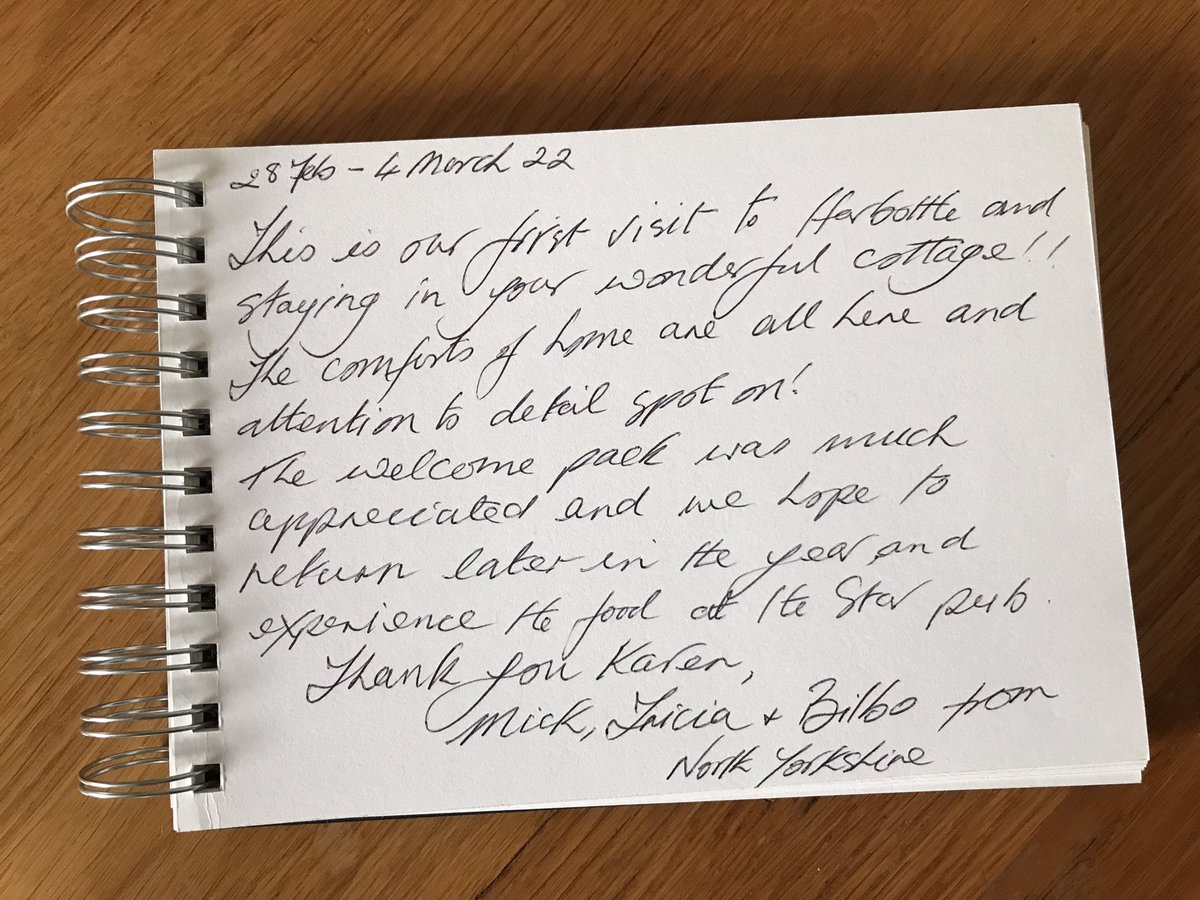 28 Feb – 4 March 22
This is our first visit to Harbottle and
staying in your wonderful cottage!!
The comforts of home are all here and
attention to detail spot on!
The welcome pack was much
appreciated and we hope to
return later in the year, and
experience the food at the Star pub.
Thank you Karen,
Mick, Tricia + Bilbo from
North Yorkshire